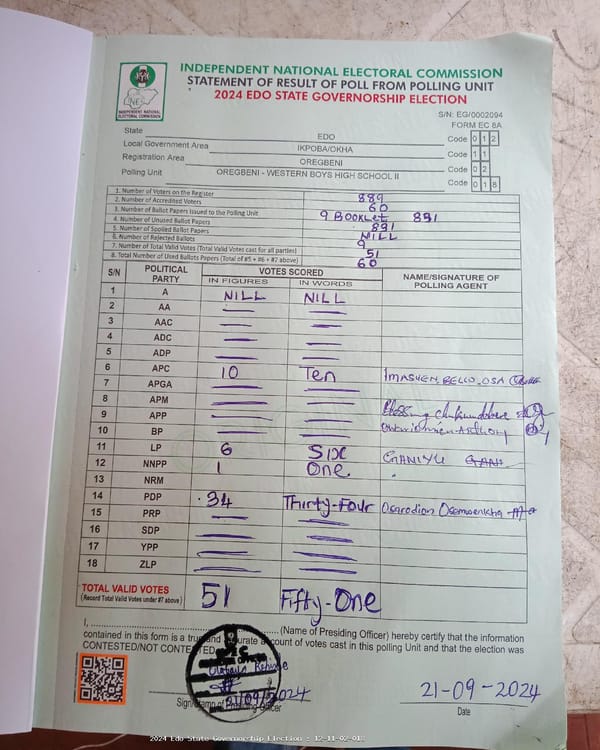 INDEPENDENT NATIONAL ELECTORAL COMMISSION
STATEMENT OF RESULT OF POLL FROM POLLING UNIT
2024 EDO STATE GOVERNORSHIP ELECTION
INDEPENDENT NATIONAL ELECTORAL COMMISSION
S/N: EG/0002094
FORM EC 8A
State EDO Code 0 1 2
Local Government Area IKPOBA/OKHA Code 1 1
Registration Area OREGBENI Code 0 2
Polling Unit OREGBENI - WESTERN BOYS HIGH SCHOOL II Code 0 1 8
1. Number of Voters on the Register 889
2. Number of Accredited Voters 60
3. Number of Ballot Papers Issued to the Polling Unit 9 BOOKLET 891
4. Number of Unused Ballot Papers 831
5. Number of Spoiled Ballot Papers NILL
6. Number of Rejected Ballots 9
7. Number of Total Valid Votes (Total Valid Votes cast for all parties) 51
8. Total Number of Used Ballots Papers (Total of #5 + #6 + #7 above) 60
S/N POLITICAL PARTY VOTES SCORED NAME/SIGNATURE OF POLLING AGENT
IN FIGURES IN WORDS
1 A NILL NILL
2 AA
3 AAC
4 ADC
5 ADP
6 APC 10 Ten IMASUEN BELLO OSA
7 APGA
8 APM
9 APP Blessing
10 BP Anthony
11 LP 6 SIX GANIYU
12 NNPP 1 One
13 NRM
14 PDP 34 Thirty-Four
15 PRP
16 SDP
17 YPP
18 ZLP
TOTAL VALID VOTES 51 Fifty-One
(Record Total Valid Votes under #7 above)
I, (Name of Presiding Officer) hereby certify that the information
contained in this form is a true and accurate account of votes cast in this polling Unit and that the election was
CONTESTED/NOT CONTESTED.
21/09/2024
21-09-2024
Sign/Stamp of Presiding Officer Date
2024 Edo State Governorship Election : 12-11-02-018